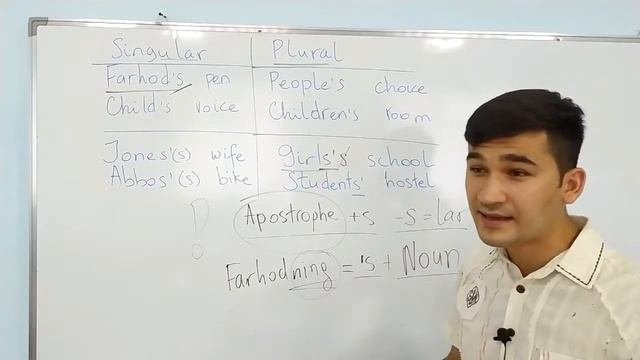 Singular Plural
Farhod's pen People's choice
Child's voice Children's room
Jones'(s) wife Girls's school
Abbos'(s) bike Students' hostel
! Apostrophe +s -s = lar
Farhodning = 's + Noun